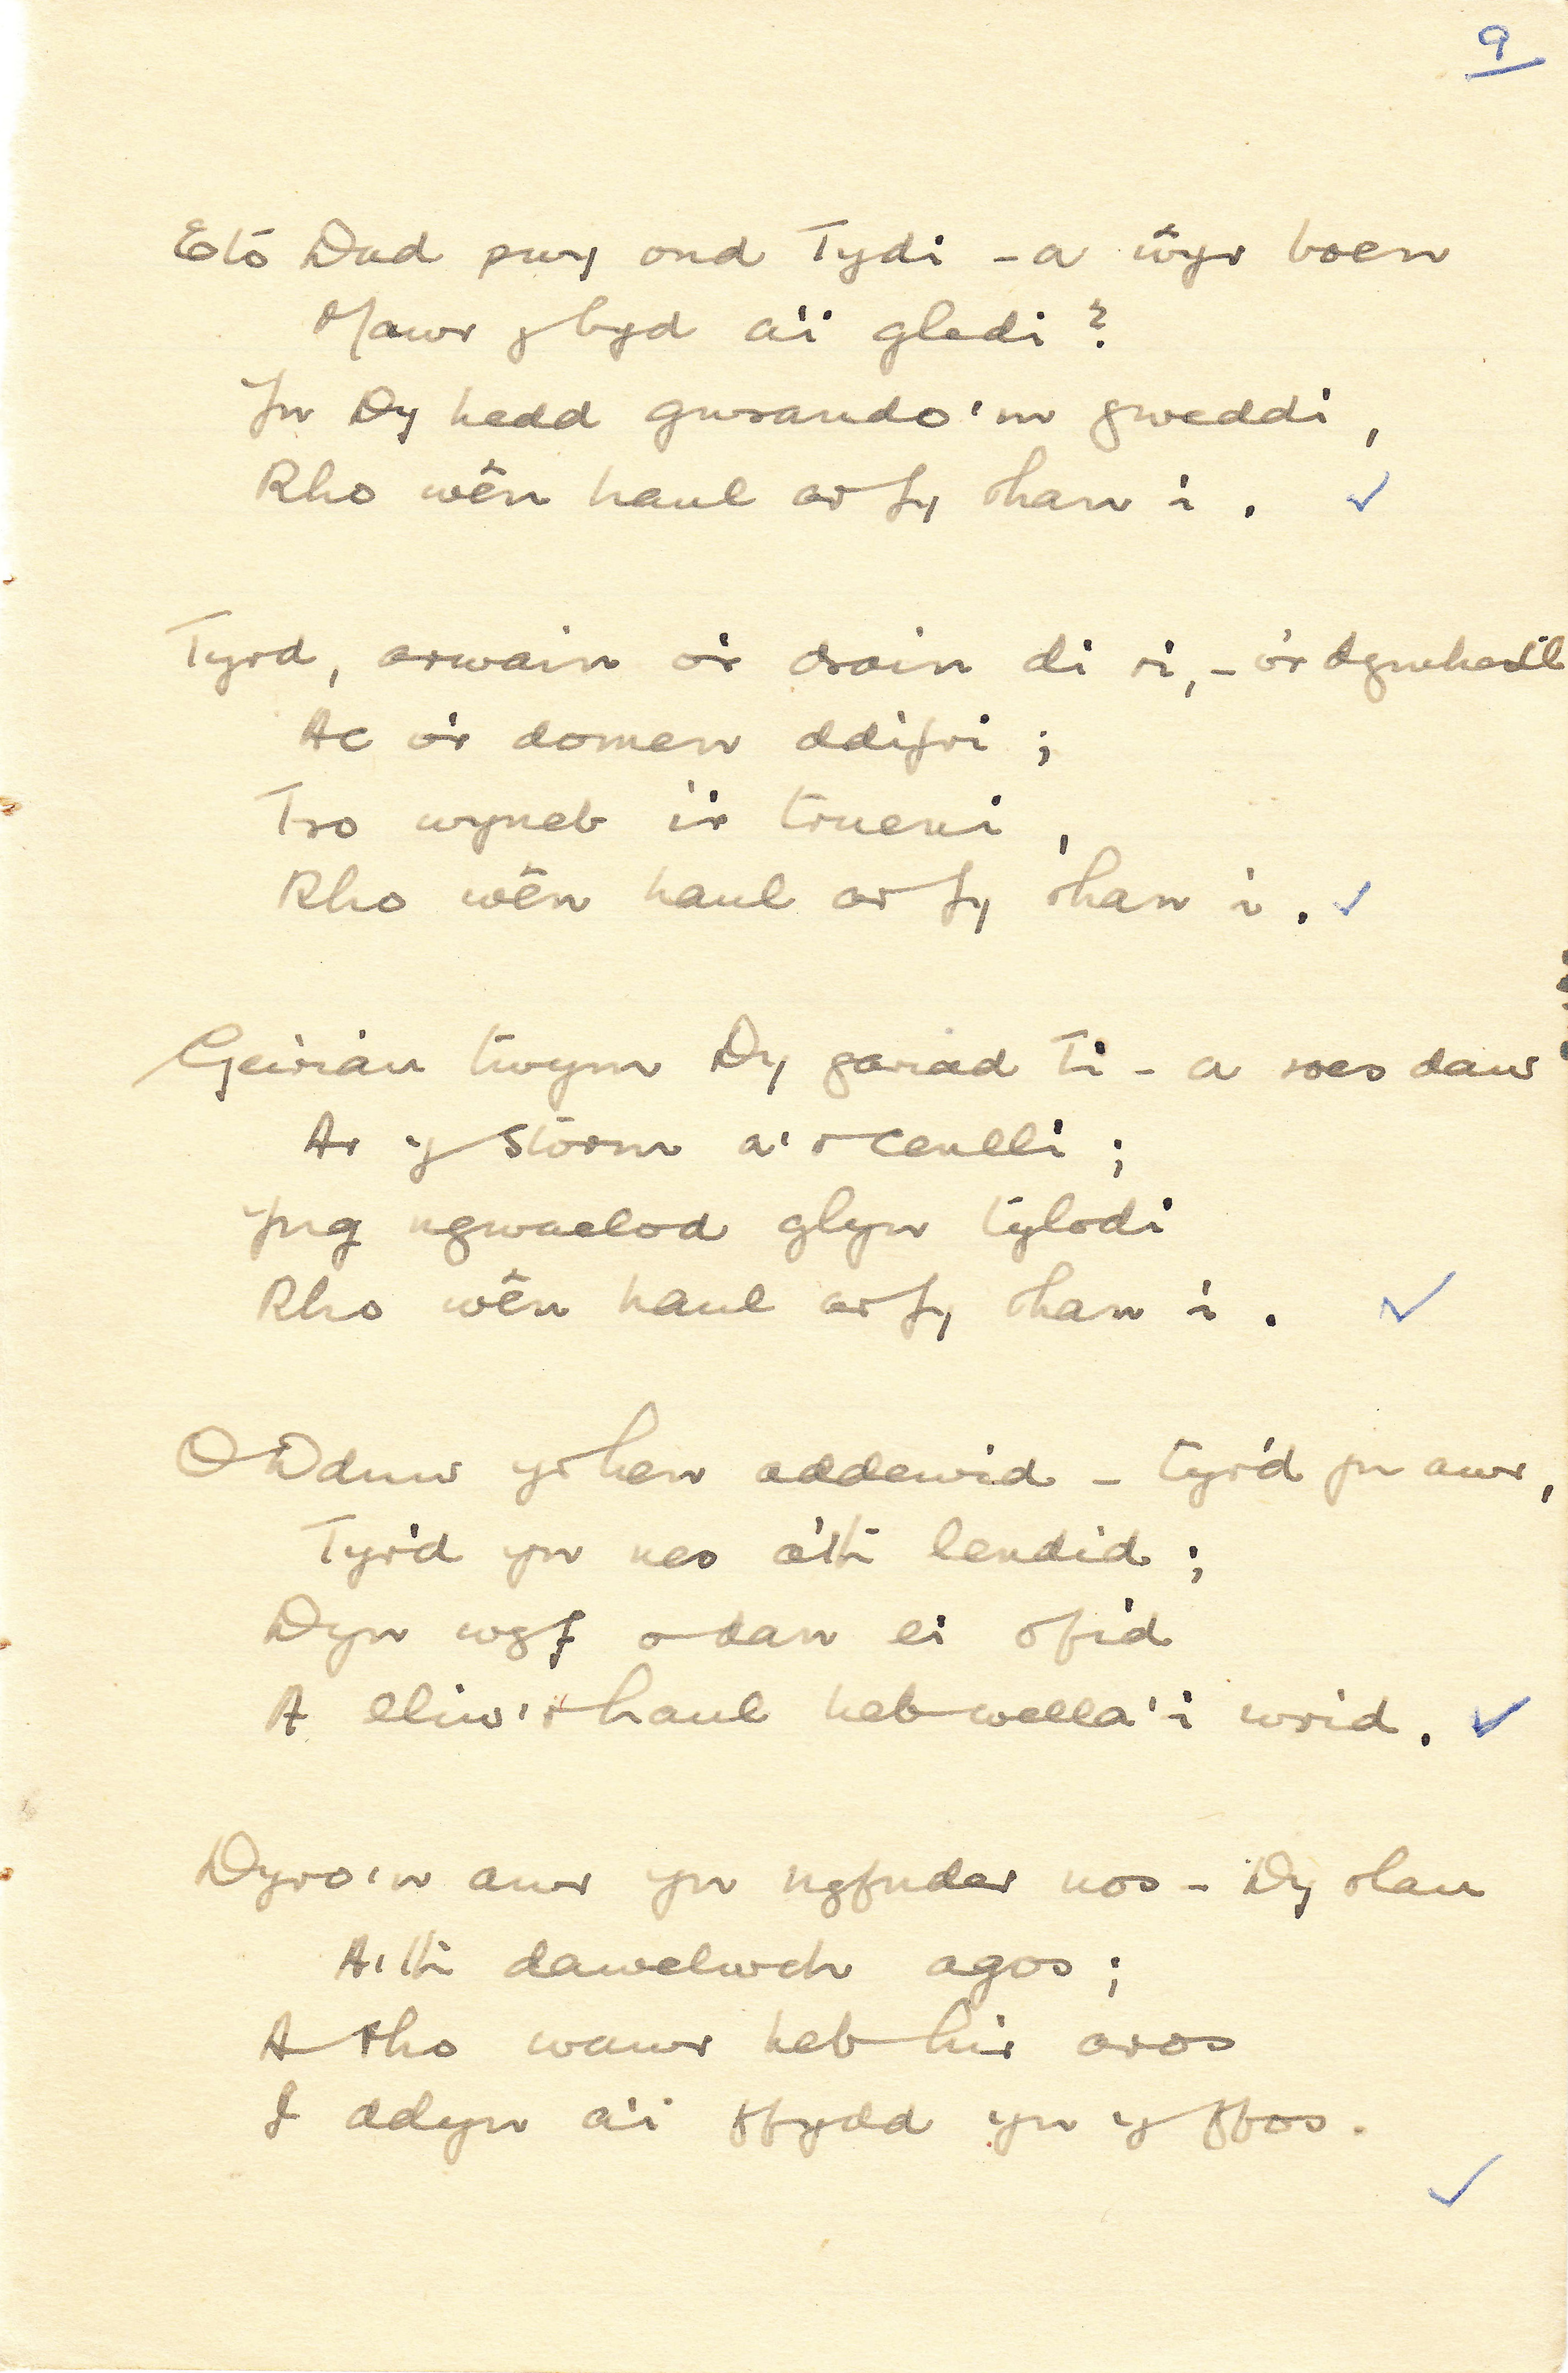 9
Eto Dad pwy ond Tydi - a ŵyr boen
Mawr y byd a'i gledi?
Yn Dy hedd gwrando'm gweddi,
Rho wên haul ar fy rhan i.
Tyrd, arwain o'r drain di ri, - o'r dymhestl
Ac o'r domen ddifri;
Tro wyneb i'r trueni,
Rho wên haul ar fy rhan i.
Geiriau twym Dy gariad Ti - a roes daw
Ar y storm a'r cenlli;
Yng ngwaelod glyn tylodi
Rho wên haul ar fy rhan i.
O Dduw yr hen addewid - tyr'd yn awr,
Tyr'd yn nes a'th lendid;
Dyn wyf o dan ei ofid
A lliw'r haul heb wella'i wrid.
Dyro'n awr yn nyfnder nos - Dy olau
A'th dawelwch agos;
A rho wawr heb hir aros
I ddyn a'i ffydd yn y ffos.